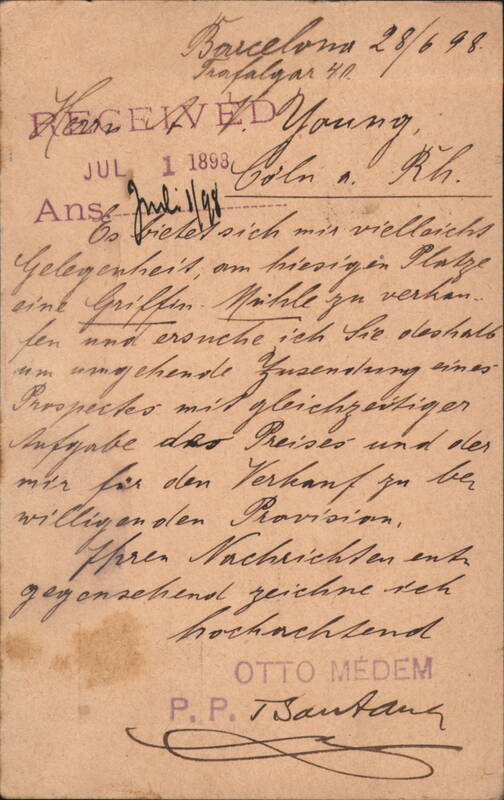 Barcelona 28/6 98.
Trafalgar 40.
Herrn A. V. Young,
RECEIVED
JUL 1 1898
Cöln a. Rh.
Ans Juli 1/98
Es bietet sich mir vielleicht
Gelegenheit, am hiesigen Platze
eine Griffin-Mühle zu verkau-
fen und ersuche ich Sie deshalb
um umgehende Zusendung eines
Prospectes mit gleichzeitiger
Aufgabe des Preises und der
mir für den Verkauf zu be
willigenden Provision.
Ihren Nachrichten ent-
gegensehend zeichne ich
hochachtend
OTTO MÉDEM
P. P.